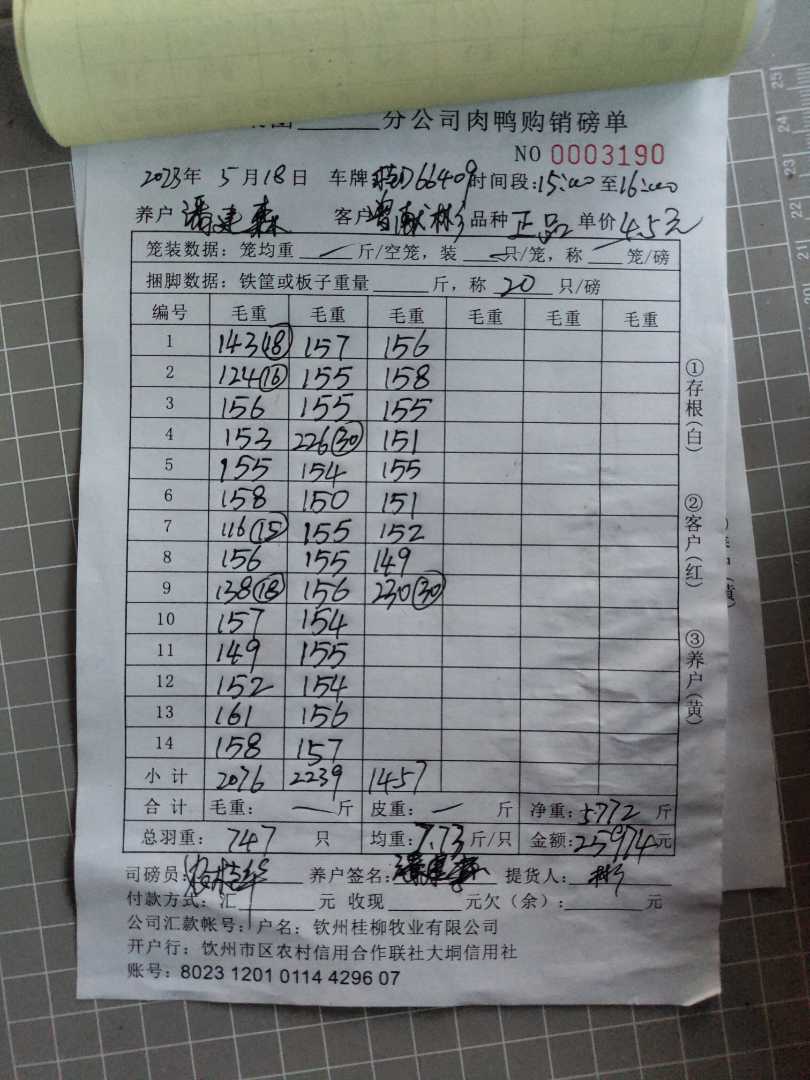 分公司肉鸭购销磅单
NO 0003190
2023年 5月18日 车牌 D66409 时间段:15:00 至16:00
养户 潘建森 客户 曾献彬 品种 正品 单价 4.5元
笼装数据：笼均重 — 斤/空笼，装 只/笼，称 笼/磅
捆脚数据：铁筐或板子重量 斤，称 20 只/磅
编号 毛重 毛重 毛重 毛重 毛重 毛重
1 143(18) 157 156
2 124(16) 155 158
3 156 155 155
4 153 226(30) 151
5 155 154 155
6 158 150 151
7 116(15) 155 152
8 156 155 149
9 138(18) 156 230(30)
10 157 154
11 149 155
12 152 154
13 161 156
14 158 157
小计 2076 2239 1457
合计 毛重： — 斤 皮重： — 斤 净重：5772 斤
总羽重： 747 只 均重：7.73斤/只 金额：25974元
司磅员： 养户签名：潘建森 提货人： 彬
付款方式：汇 元 收现 元欠（余）： 元
公司汇款帐号：户名：钦州桂柳牧业有限公司
开户行：钦州市区农村信用合作联社大垌信用社
账号：8023 1201 0114 4296 07
①存根（白）
②客户（红）
③养户（黄）